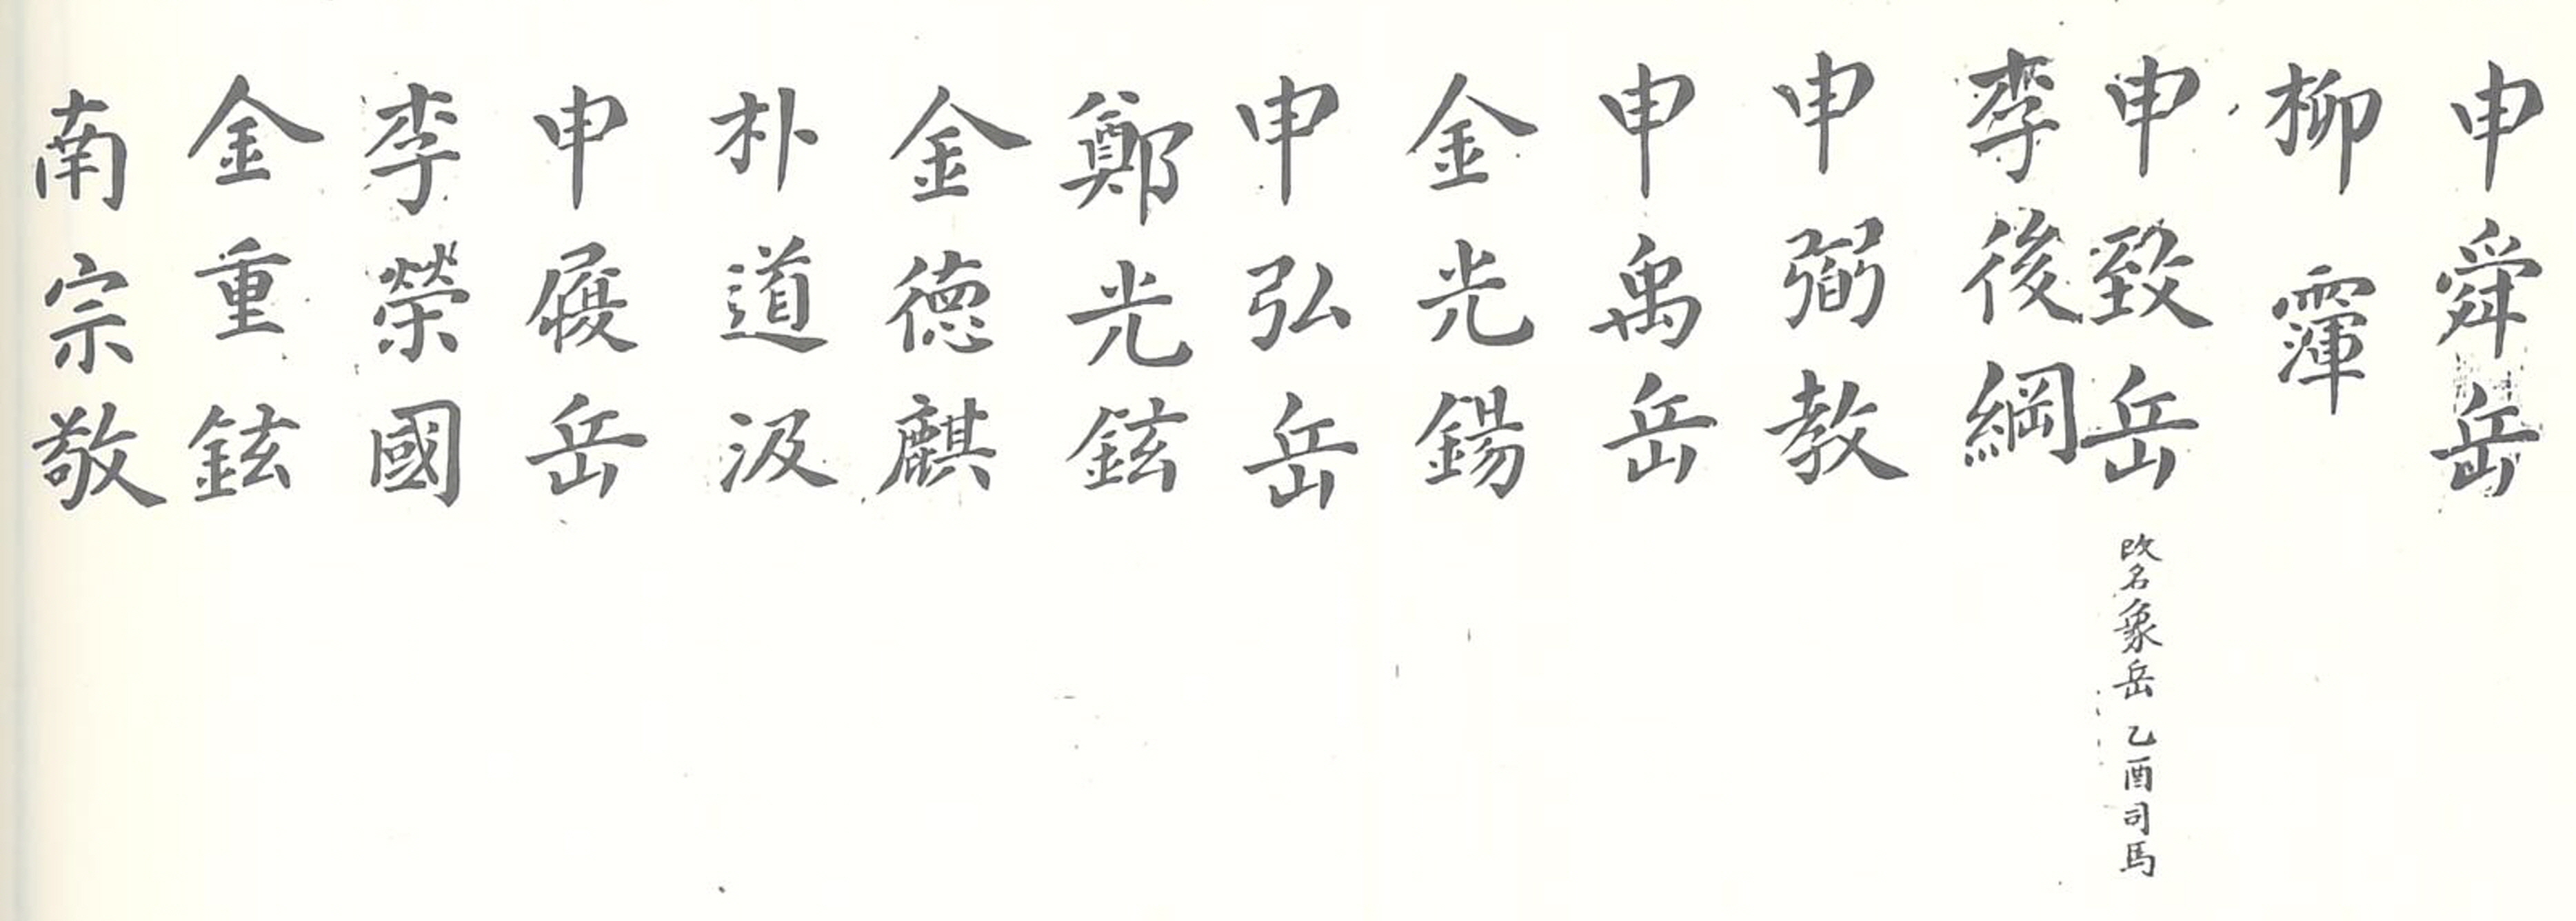 申舜岳
柳𩄐
申致岳 改名象岳 乙酉司馬
李後綱
申弼教
申禹岳
金光錫
申弘岳
鄭光鉉
金德麒
朴道汲
申岳
李榮國
金重鉉
南宗敬